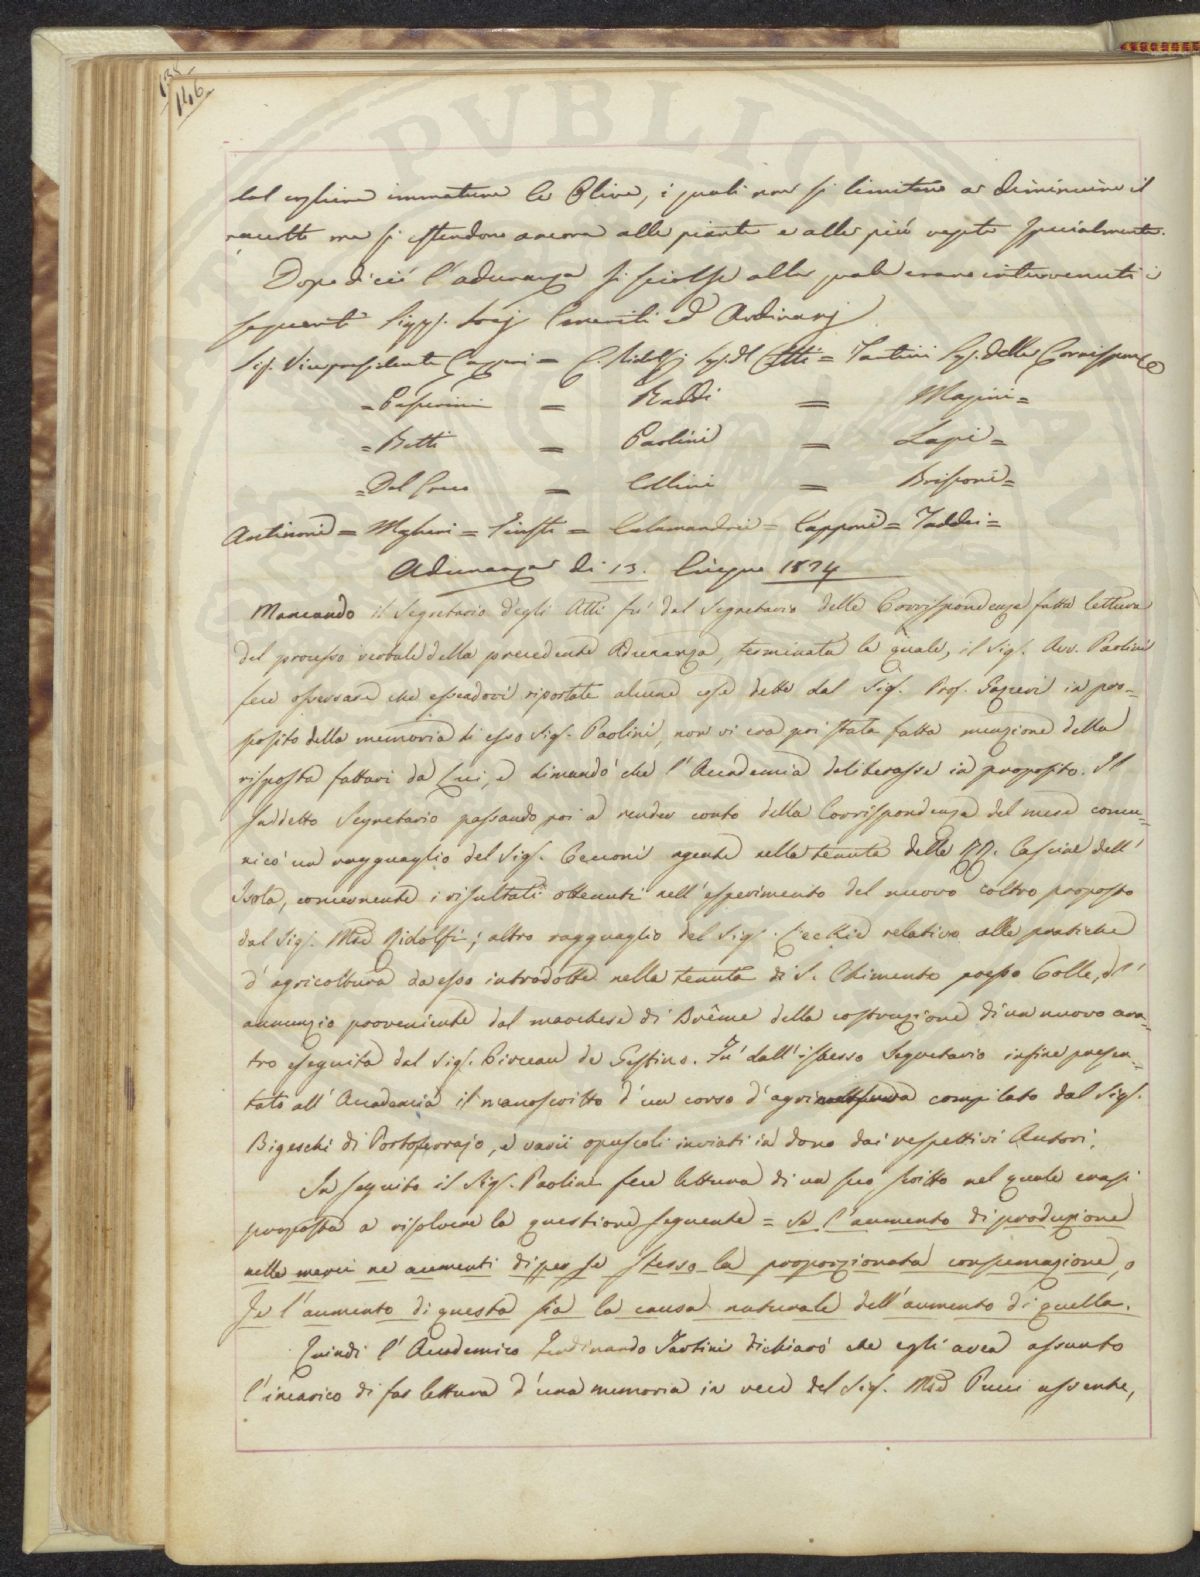 138
146
dal cogliere immature le Olive, i quali non si limitano a diminuire il
raccolto ma si estendono ancora alle piante e alle più vegete specialmente.
Dopo di ciò l'adunanza si sciolse alla quale erano intervenuti i
seguenti Sigg. Socj Emeriti ed Ordinarj
Sig. Vicepresidente = C. Ridolfi Seg. d. Atti = Tartini Seg. delle Corrispenze
= Passerini = Raddi = Magini =
= Betti = Paolini = Lapi =
= Del Greco = Collini = Brissoni =
Antinori = = = Calamandrei = Capponi = Taddei =
Adunanza de' 13. Giugno 1824
Mancando il Segretario degli Atti fu dal Segretario delle Corrispondenze fatta lettura
del processo verbale della precedente Adunanza, terminata la quale, il Sig. Avv. Paolini
fece osservare che essendovi riportate alcune cose dette dal Sig. Prof. Gazzeri in pro-
posito della memoria di esso Sig. Paolini, non vi era poi stata fatta menzione della
risposta fattavi da Lui, e dimandò che l'Accademia deliberasse in proposito. Il
suddetto Segretario passando poi a render conto della Corrispondenza del mese comu-
nicò un ragguaglio del Sig. Cecconi agente nella tenuta delle RR. Cascine dell'
Isola, concernente i risultati ottenuti nell'esperimento del nuovo coltro proposto
dal Sig. Mse Ridolfi; altro ragguaglio del Sig. relativo alle pratiche
d'agricoltura da esso introdotte nella tenuta di S. Chimento presso Colle, e l'
annunzio proveniente dal marchese di Brême della costruzione di un nuovo ara-
tro eseguita dal Sig. de Gestino. Fu dall'istesso Segretario infine presen-
tato all'Accademia il manoscritto d'un corso d'agrimensura compilato dal Sig.
Bigeschi di Portoferrajo, e varii opuscoli inviati in dono dai respettivi Autori.
In seguito il Sig. Paolini fece lettura di un suo scritto nel quale erasi
proposto a risolvere la questione seguente = Se l'aumento di produzione
nelle merci ne aumenti di per se stesso la proporzionata consumazione, o
se l'aumento di questa sia la causa naturale dell'aumento di quella.
Quindi l'Accademico Ferdinando Tartini dichiarò che egli avea assunto
l'incarico di far lettura d'una memoria in vece del Sig. Mse Pucci assente,